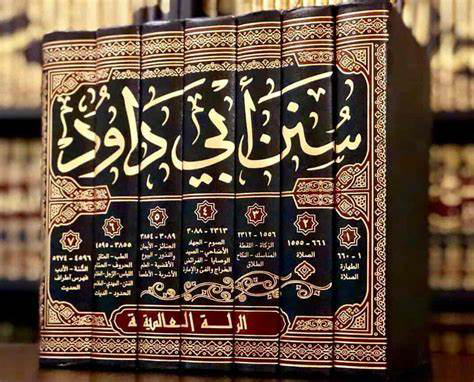 سُنَن أَبي دَاوُد
١
١ - ٦٦٠
الطهارة
الصلاة
٢
٦٦١ - ١٥٥٥
الصلاة
٣
١٥٥٦ - ٢٣١٢
الزكاة - اللقطة
المناسك - النكاح
الطلاق
٤
٢٣١٣ - ٣٠٨٨
الصوم - الجهاد
الأضاحي - الصيد
الوصايا - الفرائض
الخراج والفيء والإمارة
٥
٣٠٨٩ - ٣٨٥٤
الجنائز - الأيمان
والنذور - البيوع
الأقضية - العلم
٦
٣٨٥٥ - ٤٥٩٥
الطب - العتاق
الحروف - الحمام
اللباس - الترجل
الفتن - المهدي - الملاحم
الحدود - الديات
٧
٤٥٩٦ - ٥٢٧٤
السنة - الأدب
فهرس أطراف
الحديث
الرسالة العالمية